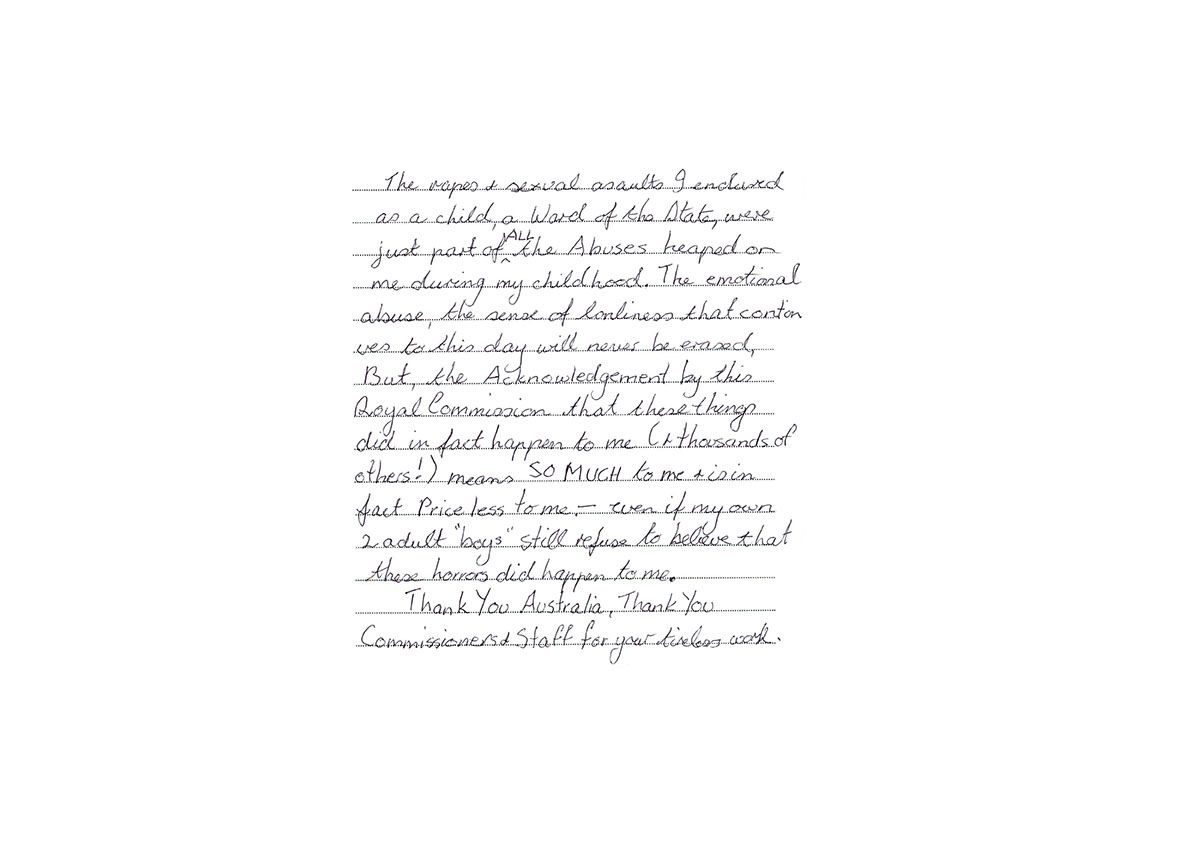 The rapes & sexual asaults I endured
as a child, a Ward of the State, were
just part of ALL the Abuses heaped on
me during my childhood. The emotional
abuse, the sense of lonliness that contin
ues to this day will never be erased,
But, the Acknowledgement by this
Royal Commission that these things
did in fact happen to me (& thousands of
others!) means SO MUCH to me & is in
fact Price less to me. — even if my own
2 adult "boys" still refuse to believe that
these horrors did happen to me.
Thank You Australia, Thank You
Commissioners & Staff for your tireless work.